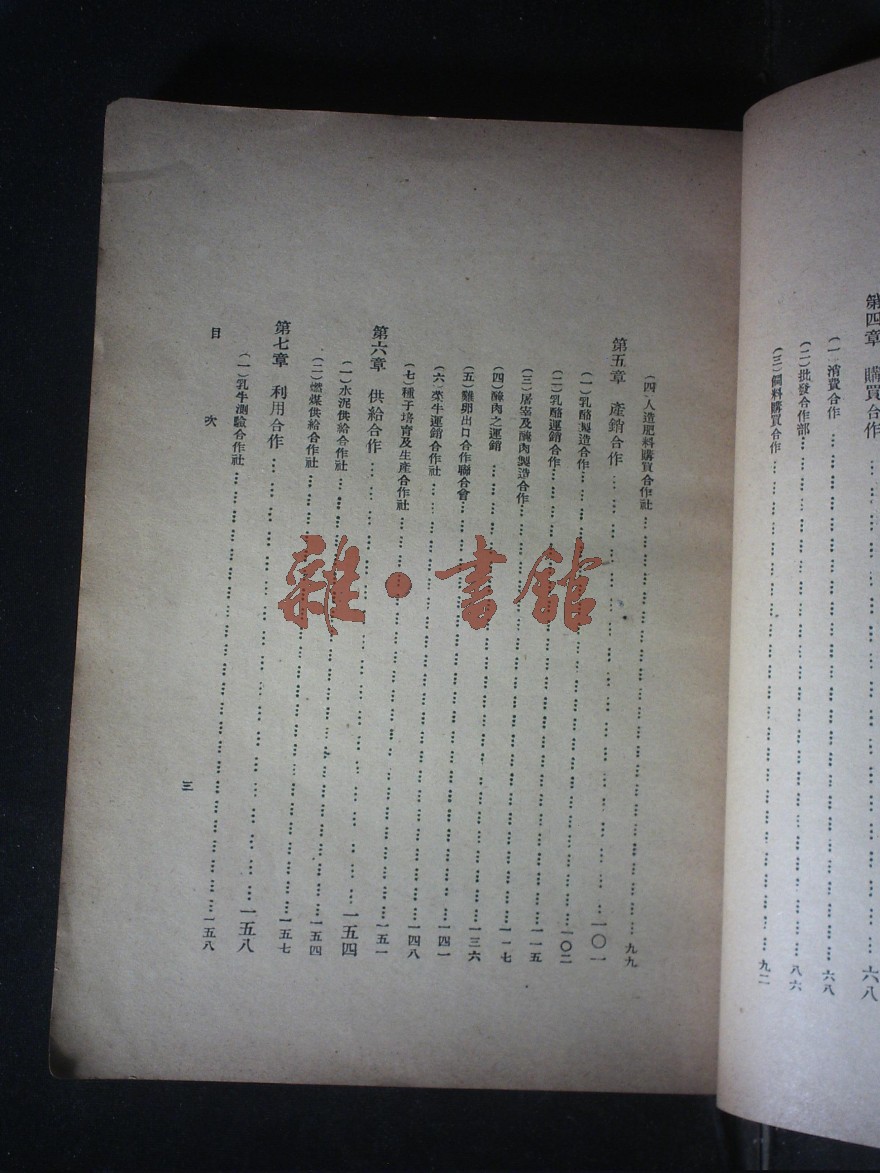 第四章　購買合作……六八
(一)消費合作……六八
(二)批發合作部……八六
(三)飼料購買合作……九二
(四)人造肥料購買合作社……九九
第五章　產銷合作……一〇一
(一)乳酪製造合作……一〇二
(二)乳酪運銷合作……一一五
(三)屠宰及醃肉製造合作……一一七
(四)醃肉之運銷……一三六
(五)雞卵出口合作聯合會……一四一
(六)菜牛運銷合作社……一四八
(七)種子培育及生產合作社……一五一
第六章　供給合作……一五四
(一)水泥供給合作社……一五四
(二)燃煤供給合作社……一五七
第七章　利用合作……一五八
(一)乳牛測驗合作社……一五八
目次　三
雜·書館